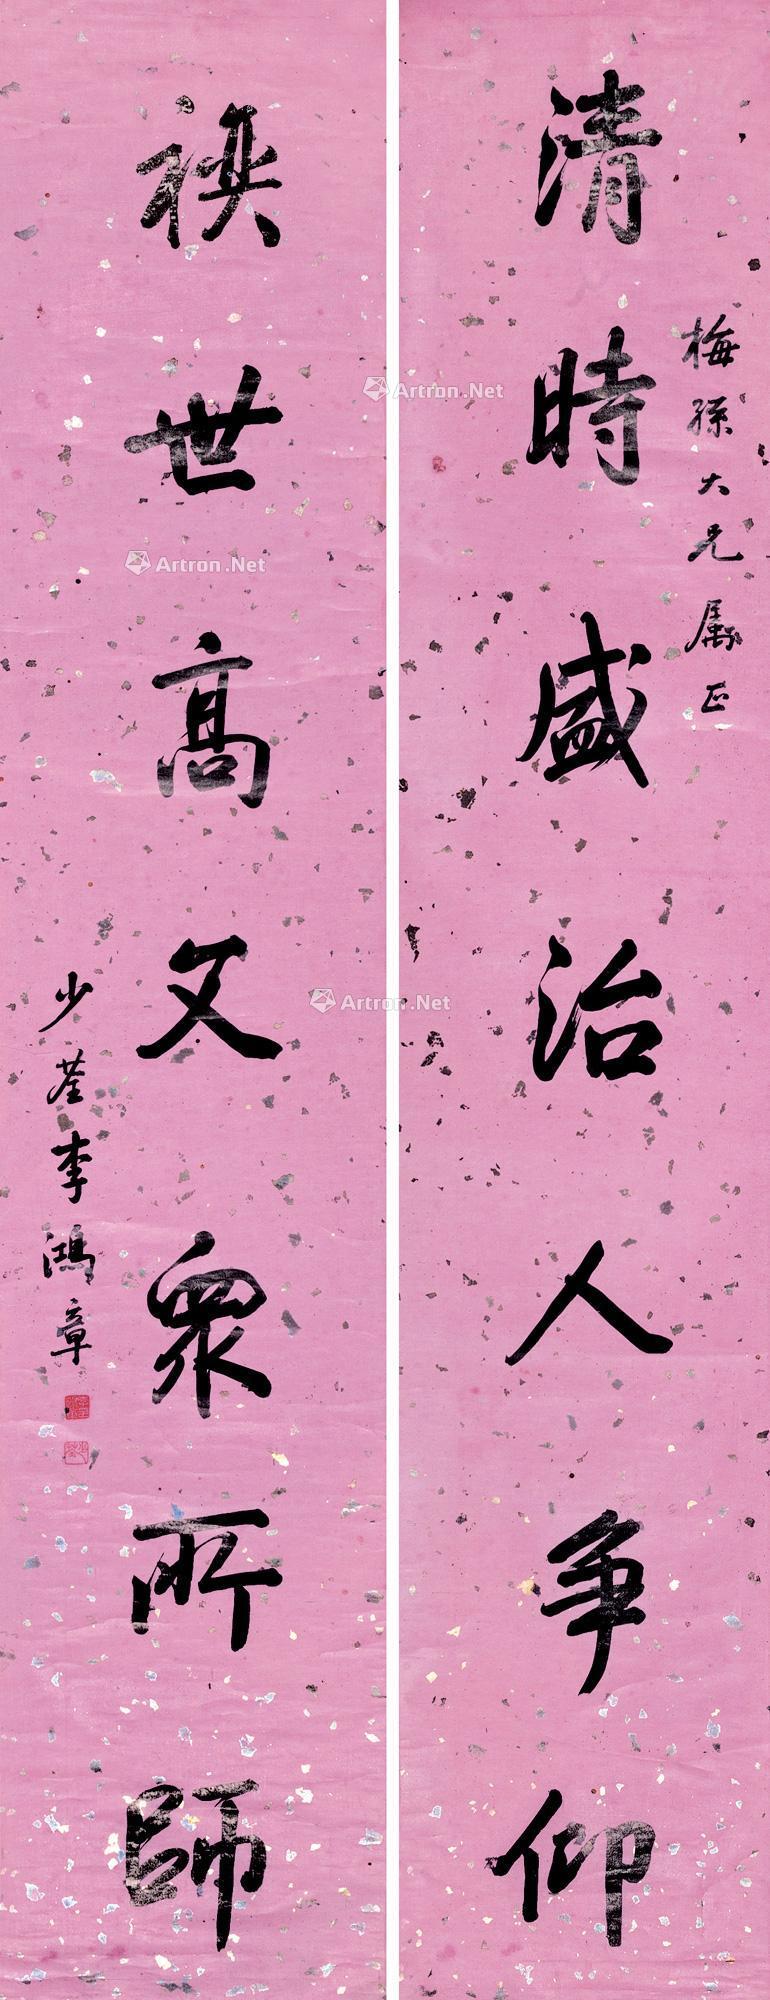 梅孫大兄属正
清時盛治人争仰
世髙文眾所師
少荃李鴻章
Artron.Net
Artron.Net
Artron.Net